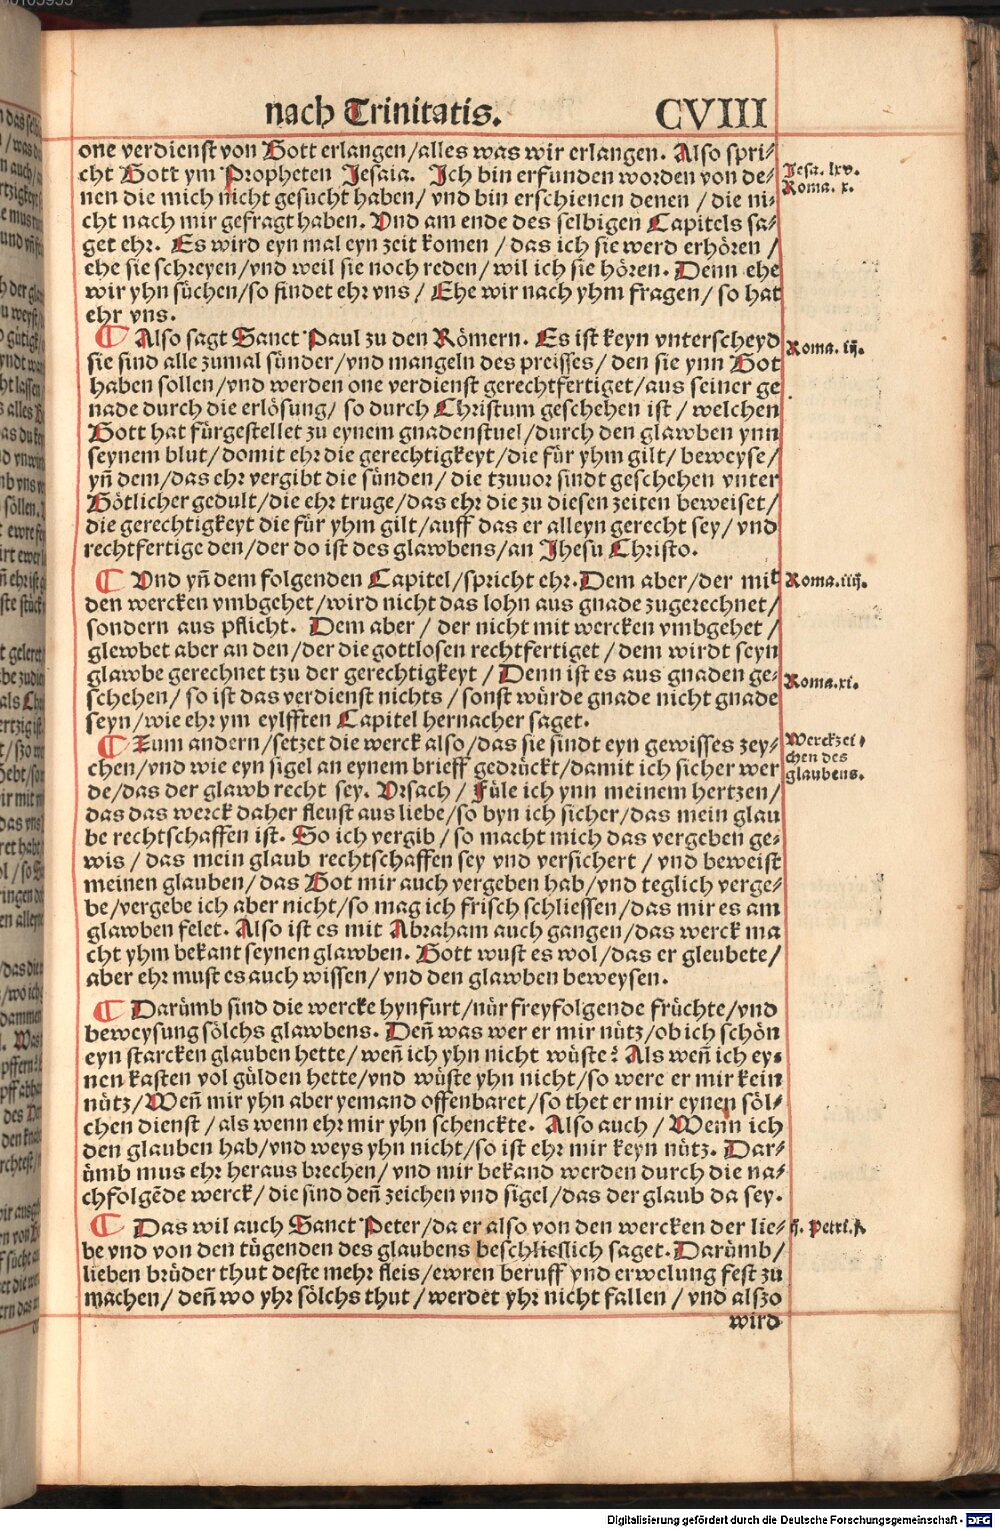 nach Trinitatis. CVIII
one verdienst von Gott erlangen/alles was wir erlangen. Also spri⸗
cht Gott ym Propheten Jesaia. Ich bin erfunden worden von de⸗
nen die mich nicht gesucht haben/ vnd bin erschienen denen / die ni⸗
cht nach mir gefragt haben. Vnd am ende des selbigen Capitels sa⸗
get ehr. Es wird eyn mal eyn zeit komen / das ich sie werd erhören /
ehe sie schreyen/vnd weil sie noch reden/ wil ich sie hören. Denn ehe
wir yhn süchen/so findet ehr vns / Ehe wir nach yhm fragen/ so hat
ehr vns.
Jesa. lxv.
Roma. x.
¶ Also sagt Sanct Paul zu den Römern. Es ist keyn vnterscheyd
sie sind alle zumal sünder/vnd mangeln des preisses/ den sie ynn Got
haben sollen/vnd werden one verdienst gerechtfertiget/aus seiner ge
nade durch die erlösung/ so durch Christum geschehen ist / welchen
Gott hat fürgestellet zu eynem gnadenstuel/durch den glawben ynn
seynem blut/domit ehr die gerechtigkeyt/die für yhm gilt/ beweyse/
yn̄ dem/das ehr vergibt die sünden/ die tzuuor sindt geschehen vnter
Götlicher gedult/die ehr truge/das ehr die zu diesen zeiten beweiset/
die gerechtigkeyt die für yhm gilt/auff das er alleyn gerecht sey/ vnd
rechtfertige den/der do ist des glawbens/an Jhesu Christo.
Roma. iij.
¶ Vnd yn̄ dem folgenden Capitel/spricht ehr. Dem aber/der mit
den wercken vmbgehet/wird nicht das lohn aus gnade zugerechnet/
sondern aus pflicht. Dem aber / der nicht mit wercken vmbgehet /
glewbet aber an den/der die gottlosen rechtfertiget / dem wirdt seyn
glawbe gerechnet tzu der gerechtigkeyt / Denn ist es aus gnaden ge⸗
schehen/ so ist das verdienst nichts / sonst würde gnade nicht gnade
seyn/wie ehr ym eylfften Capitel hernacher saget.
Roma. iiij.
Roma. xi.
¶ Zum andern/setzet die werck also/das sie sindt eyn gewisses zey⸗
chen/vnd wie eyn sigel an eynem brieff gedrückt/damit ich sicher wer
de/das der glawb recht sey. Vrsach / Füle ich ynn meinem hertzen/
das das werck daher fleust aus liebe/so byn ich sicher/das mein glau
be rechtschaffen ist. So ich vergib / so macht mich das vergeben ge⸗
wis / das mein glaub rechtschaffen sey vnd versichert / vnd beweist
meinen glauben/das Got mir auch vergeben hab/vnd teglich verge⸗
be/vergebe ich aber nicht/so mag ich frisch schliessen/das mir es am
glawben felet. Also ist es mit Abraham auch gangen/das werck ma
cht yhm bekant seynen glawben. Gott wust es wol/das er gleubete/
aber ehr must es auch wissen/ vnd den glawben beweysen.
Werckzei⸗
chen des
glaubens.
¶ Darümb sind die wercke hynfurt/nür frey folgende früchte/vnd
beweysung sölchs glawbens. Den̄ was wer er mir nütz/ob ich schön
eyn starcken glauben hette/ wen̄ ich yhn nicht wüste? Als wen̄ ich ey⸗
nen kasten vol gülden hette/vnd wüste yhn nicht/so were er mir kein
nütz/Wen̄ mir yhn aber yemand offenbaret/so thet er mir eynen söl⸗
chen dienst/ als wenn ehr mir yhn schenckte. Also auch / Wenn ich
den glauben hab/vnd weys yhn nicht/so ist ehr mir keyn nütz. Dar⸗
ümb mus ehr heraus brechen/ vnd mir bekand werden durch die na⸗
chfolgēde werck/ die sind den̄ zeichen vnd sigel/das der glaub da sey.
¶ Das wil auch Sanct Peter/da er also von den wercken der lie⸗
be vnd von den tügenden des glaubens beschliesslich saget. Darümb/
lieben brüder thut deste mehr fleis/ewren beruff vnd erwelung fest zu
machen/ den̄ wo yhr sölchs thut/ werdet yhr nicht fallen / vnd alszo
wird
ij. Petri. j.
Digitalisierung gefördert durch die Deutsche Forschungsgemeinschaft - DFG